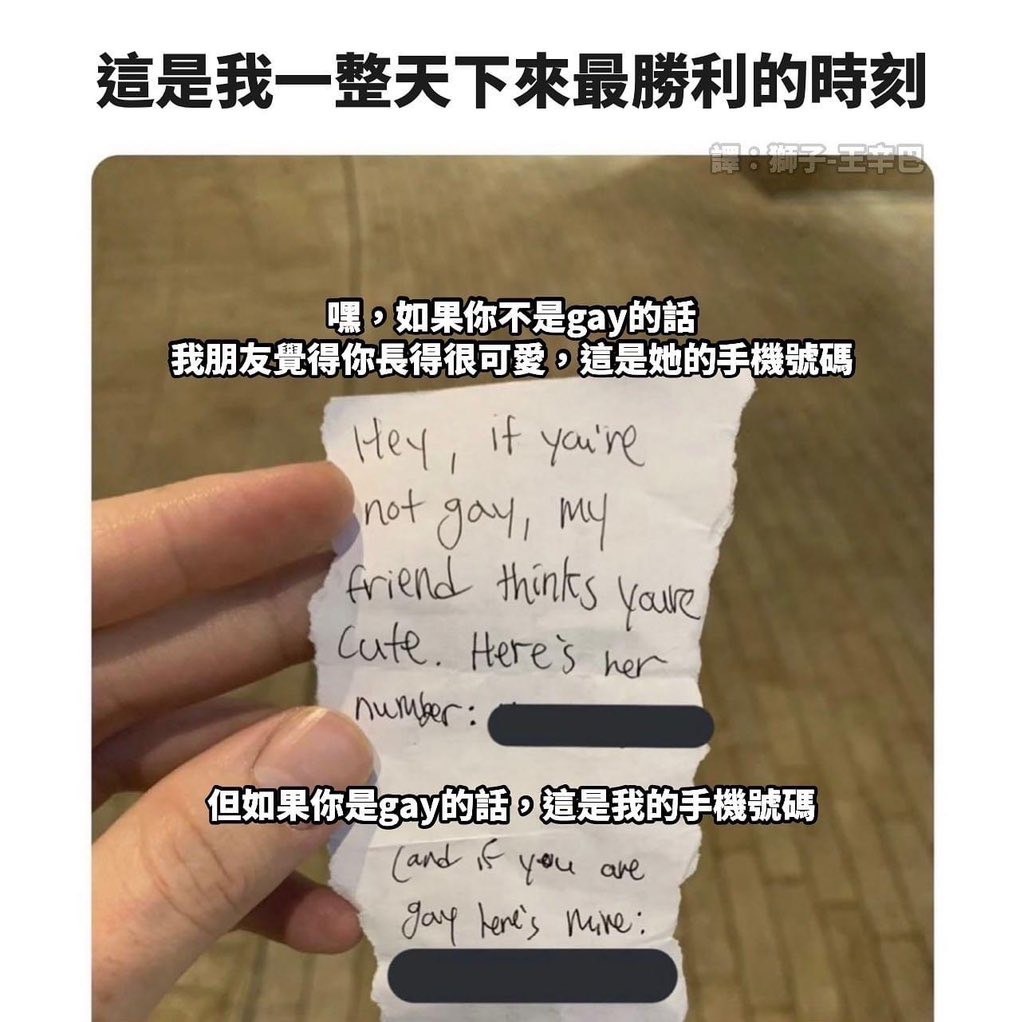 這是我一整天下來最勝利的時刻
譯：獅子-王辛巴
嘿，如果你不是gay的話
我朋友覺得你長得很可愛，這是她的手機號碼
Hey, if you're
not gay, my
friend thinks youre
cute. Here's her
number:
但如果你是gay的話，這是我的手機號碼
(and if you are
gay here's mine: